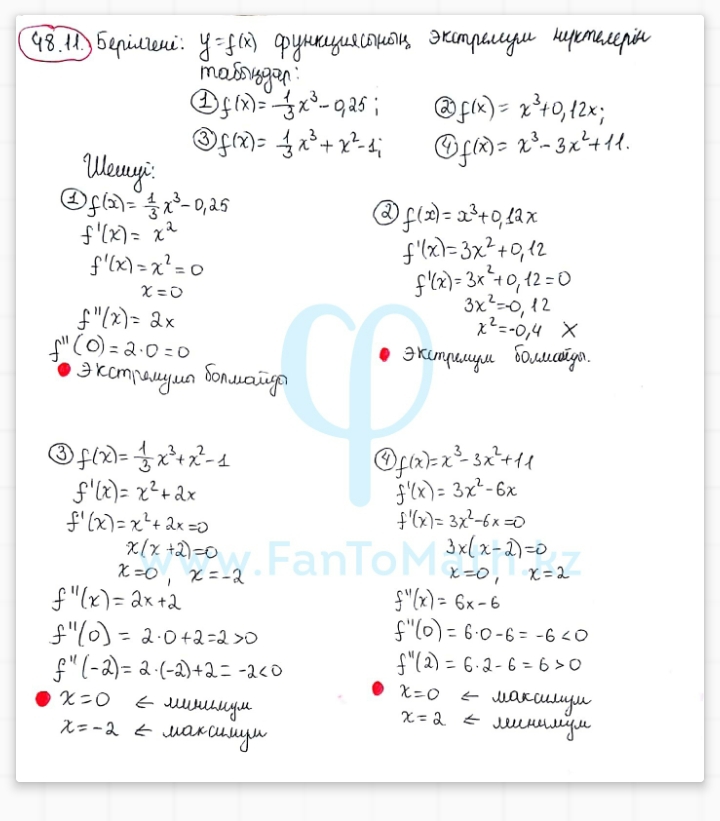 48.11. Берілгені: y=f(x) функциясының экстремум нүктелерін
табыңдар:
① f(x)= 1/3 x³ - 0,25 ; ② f(x) = x³+0,12x;
③ f(x)= 1/3 x³ + x² - 1; ④ f(x)= x³ - 3x² + 11.
Шешуі:
① f(x)= 1/3 x³ - 0,25
f'(x)= x²
f'(x)=x²=0
x=0
f''(x)= 2x
f''(0)=2·0=0
Экстремумы болмайды
② f(x)=x³+0,12x
f'(x)=3x²+0,12
f'(x)=3x²+0,12=0
3x²=-0,12
x²=-0,4 X
Экстремум болмайды.
③ f(x)= 1/3 x³+x²-1
f'(x)= x²+2x
f'(x)=x²+2x=0
x(x+2)=0
x=0, x=-2
f''(x)= 2x+2
f''(0) = 2·0+2=2>0
f''(-2)= 2·(-2)+2= -2<0
x=0 ← минимум
x=-2 ← максимум
④ f(x)=x³-3x²+11
f'(x)= 3x²-6x
f'(x)=3x²-6x=0
3x(x-2)=0
x=0, x=2
f''(x)= 6x-6
f''(0)=6·0-6= -6<0
f''(2)=6·2-6=6>0
x=0 ← максимум
x=2 ← минимум
www.FanToMath.kz